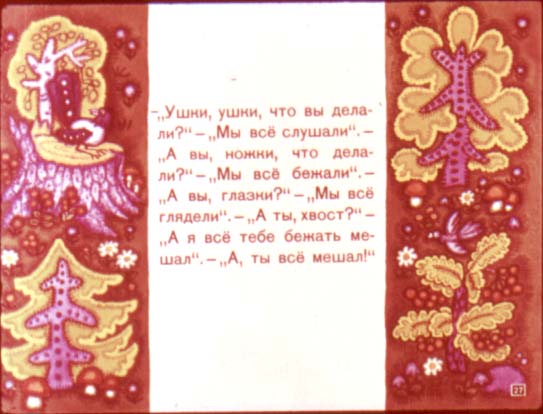 –„Ушки, ушки, что вы дела-
ли?“ – „Мы всё слушали“. –
„А вы, ножки, что дела-
ли?“ – „Мы всё бежали“. –
„А вы, глазки?“ – „Мы всё
глядели“. – „А ты, хвост?“ –
„А я всё тебе бежать ме-
шал“. – „А, ты всё мешал!“
27